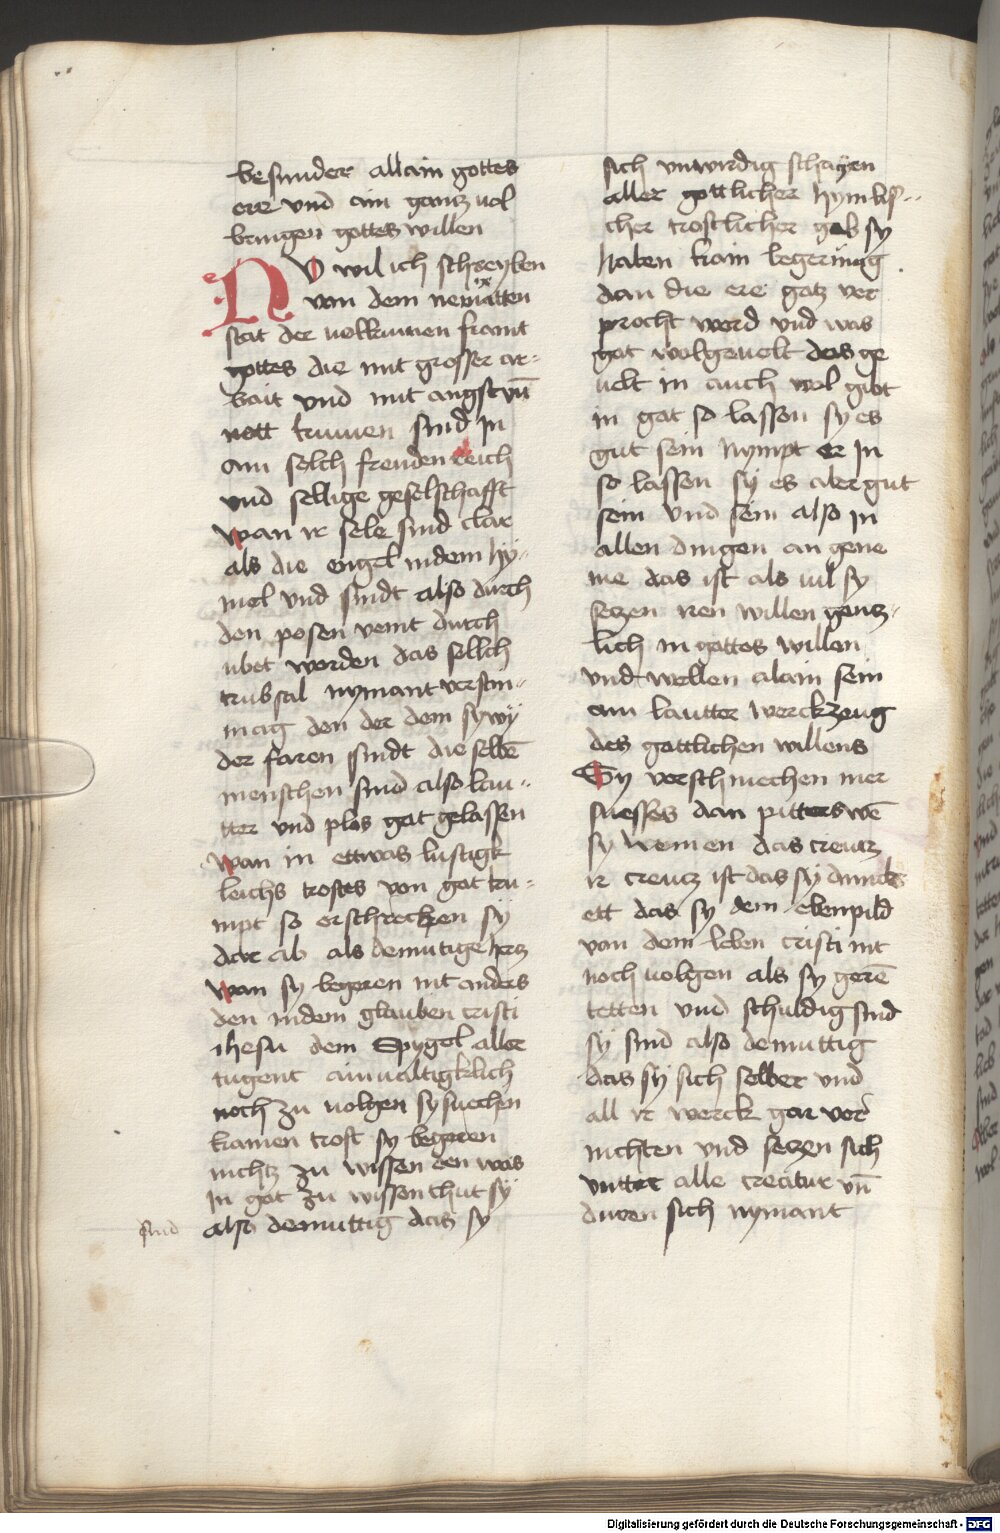 besunder allain gottes
ere vnd ain gancz uol
bringen gottes willen
NV wil ich schreyben
von dem newnten
ix
stat der uolkumen fraint
gottes die mit grosser ar-
bait vnd mit angst vn̄
nott kumen sind in
ain selch freuden reich
vnd sellige geselschafft
wan ir sele sind clar
als die engel in dem hy-
mel vnd sindt also durch
den posen veint durch
ubet worden das sellch
trubsal nymant versten-
mag den der dem sy wy
der faren sindt die selbē
menschen sind also lau-
tter vnd plos got gelassen
wan in ettwas lustigk
leichs trostes von got ku-
mpt so erschrecken sy
dar ab als demutige hercz
wan sy begeren nit anders
den in dem glauben cristi
ihesu dem Spygel aller
tugent ainualtigklich
noch zu uolgen sy suechen
kainen trost sy begeren
nichtz zu wissen den was
in got zu wissen thut sy
sind
also demuttig das sy
sich vnwirdig schaczen
aller gottlicher hymlis-
cher trostlicher gab sy
haben kain begerung
dan die ere gotz ver
procht werd vnd was
got wolgeuelt das ge
uelt in auch wol gibt
in got so lassen sy es
gut sein nympt er in
so lassen sy es aber gut
sein vnd sein also in
allen dingen an gene
me das ist als uil sy
seczen iren willen gencz-
lich in gottes willen
vnd wellen alain sein
ain lautter werckzeug
des gottlichen willens
Sy verschmechen mer
suesses dan pitters wē
sy wemen das creucz
ir creucz ist das sy dunck
ett das sy dem ebenpild
von dem leben cristi nit
noch uolgen als sy gerē
tetten vnd schuldig sind
sy sind also demuttig
das sy sich selber vnd
all ir werck gar ver
nichten vnd seczen sich
vntter alle creatur vn̄
duren sich nymant
Digitalisierung gefördert durch die Deutsche Forschungsgemeinschaft - DFG